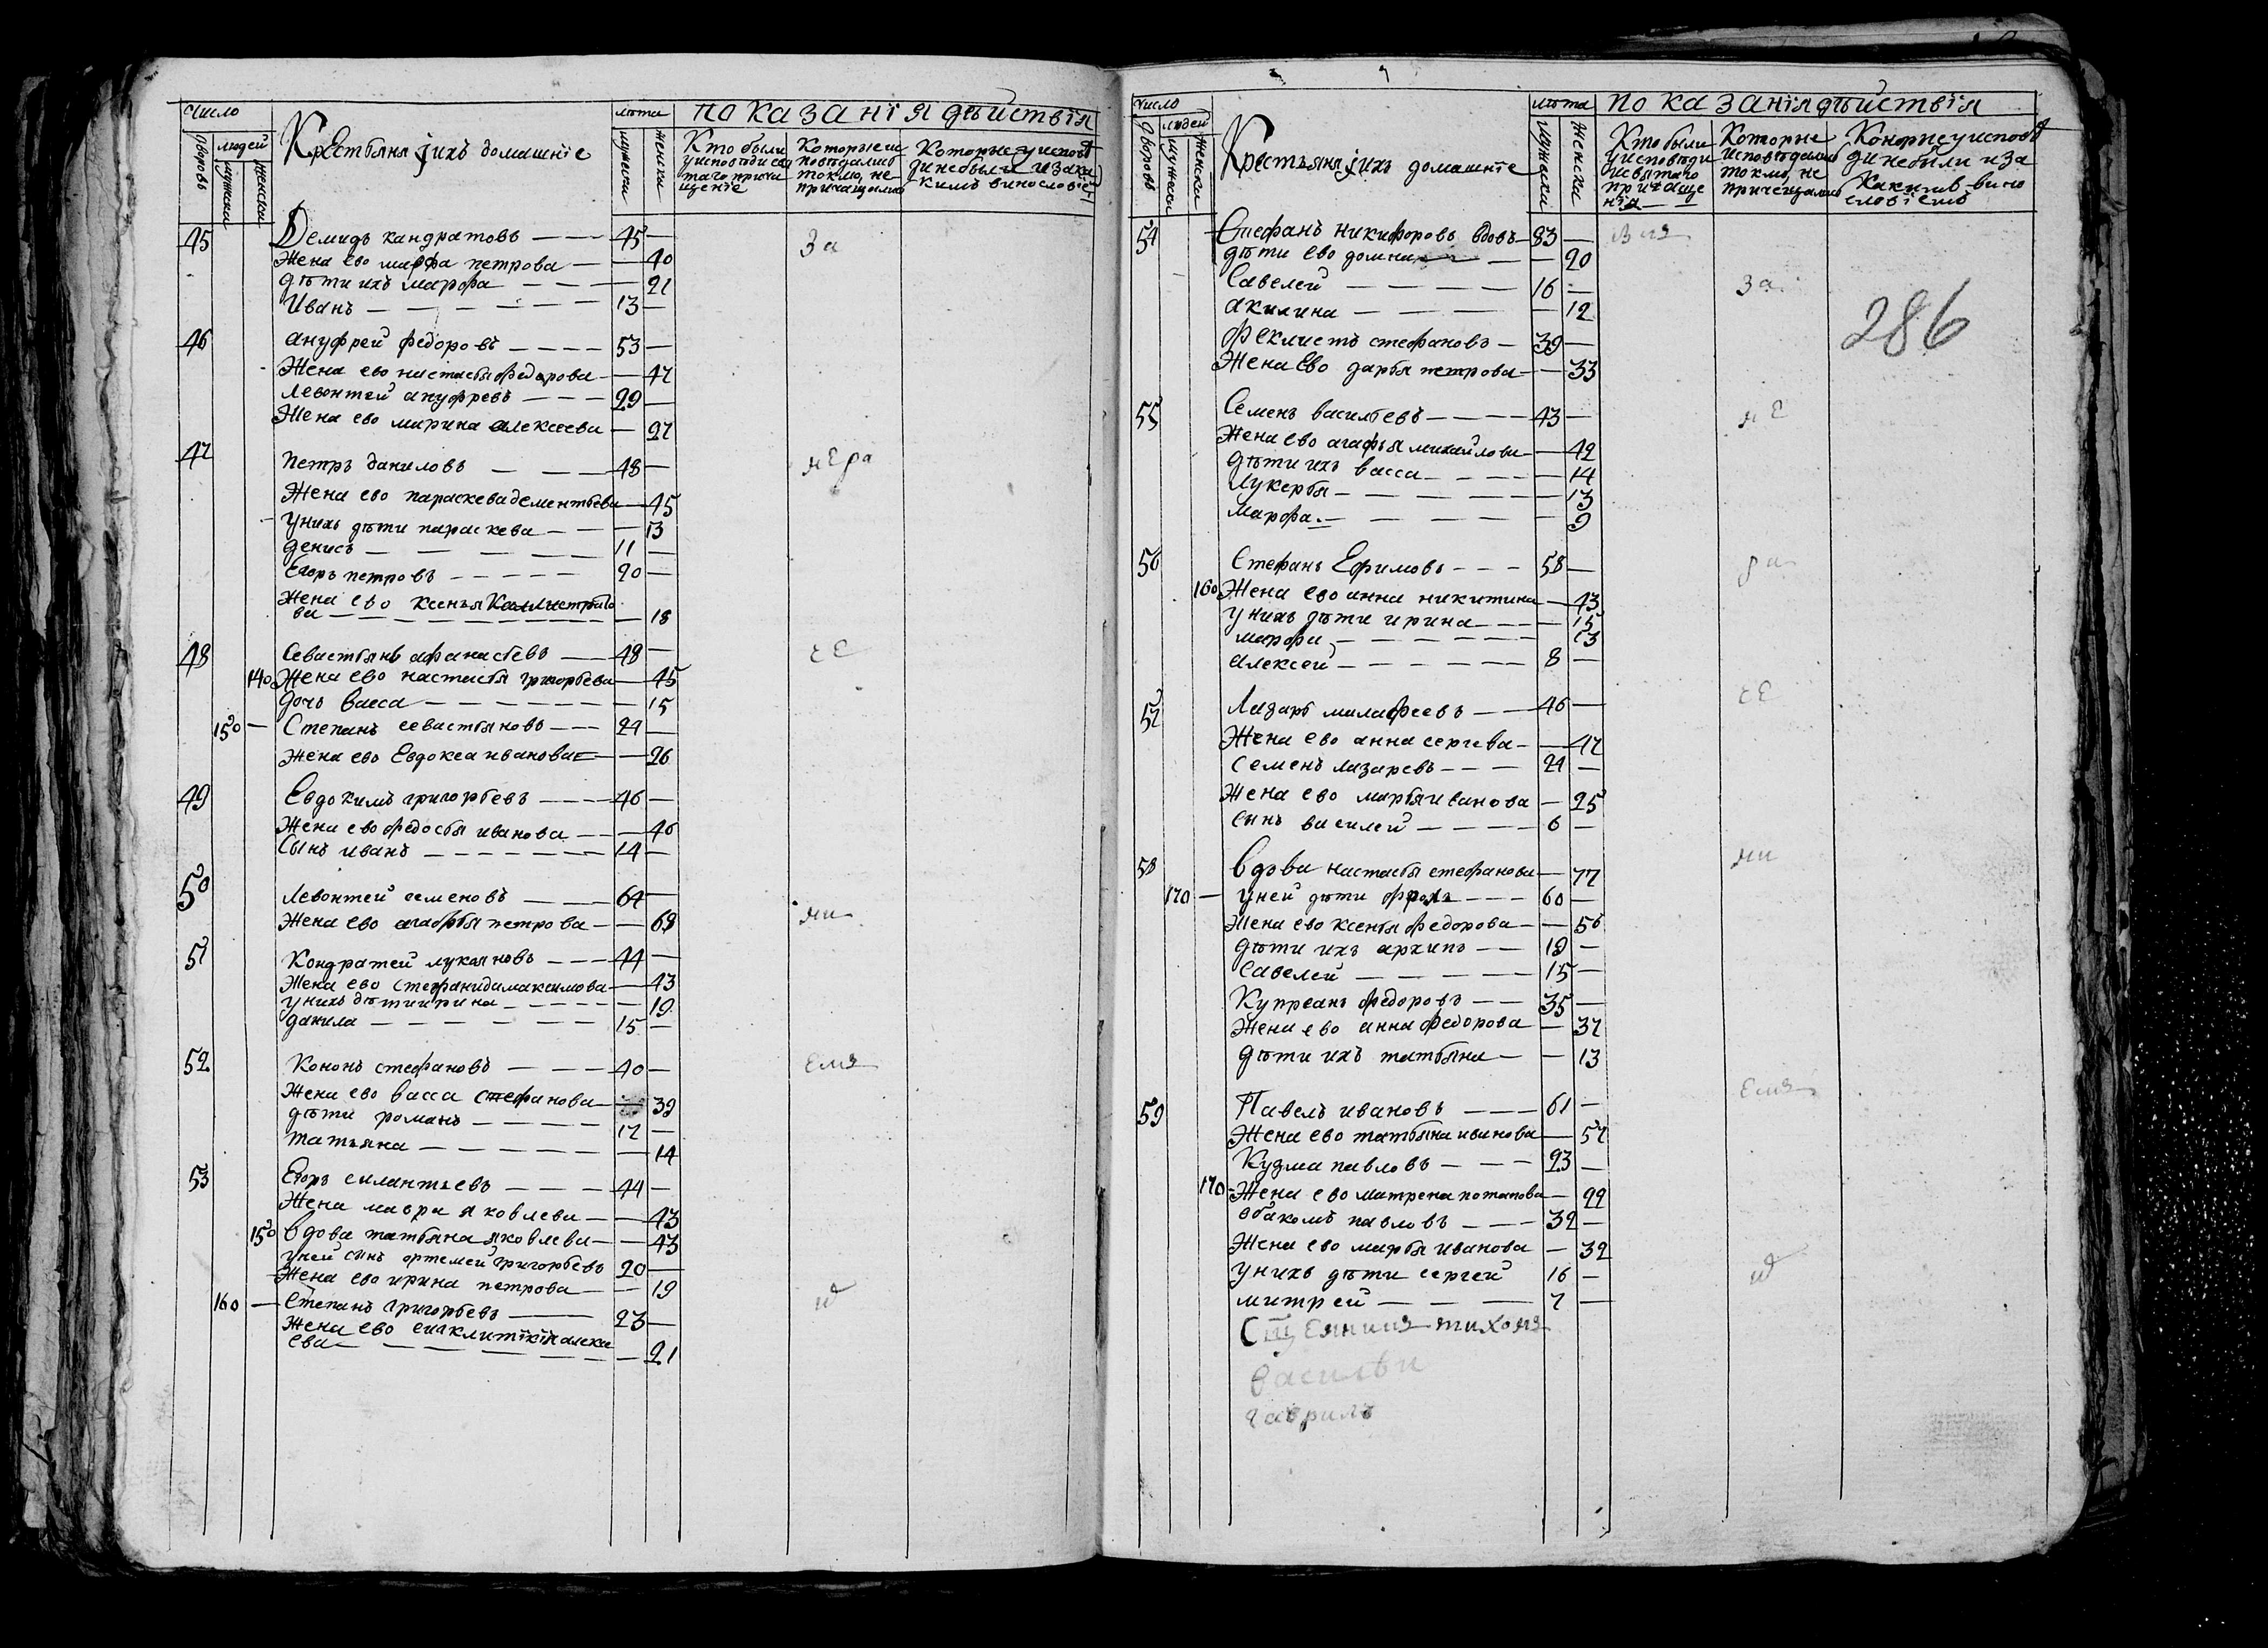 Число
людей
дворовъ
мужеска
женска
Крестьяня јихъ домашнїе
лѣта
мужеска
женска
показанїя дѣйствїя
Кто были
у исповѣди свя
таго прича
щенїе
Которые ис
повѣдалис
токмо, не
причащалис
Которые у исповѣ
ди небыли и за ка
кимъ винословїе
45 Демидъ кандратовъ — 45 —
Жена ево марфа петрова — — 40
дѣти ихъ марфа — — 21
Иванъ — 13 —
За
46 ануфрей федоровъ — 53 —
Жена ево настасья федорова — — 47
Левонтей ануфревъ — 29 —
Жена ево марина алексеева — 27
47 Петръ даниловъ — 48 —
нера
Жена ево параскева дементьева — 45
Унихъ дѣти параскева — — 13
денисъ — 11 —
Егоръ петровъ — 20 —
Жена ево ксенья Каллистрато
ва — — 18
48 Севастьянъ афанасьевъ — 48 —
се
140 Жена ево настасья григорьева — 45
дочь васса — — 15
150 — Степанъ севастьяновъ — 24 —
жена ево Евдокеа иванова — — 26
49 Евдокимъ григорьевъ — 46 —
Жена ево федосья иванова — — 46
Сынъ иванъ — 14 —
50 Левонтей семеновъ — 64 —
Жена ево агафья петрова — — 63
ни
51 Кондратей лукяновъ — 44 —
Жена ево стефанида максимова — 43
унихъ дѣти ирина — — 19
данила — 15 —
52 Кононъ стефановъ — 40 —
Жена ево васса стефанова — — 39
дѣти романъ — 17 —
татьяна — — 14
53 Егоръ силантьевъ — 44 —
Жена мавра яковлева — — 43
150 вдова татьяна яковлева — — 43
уней сынъ ортемей григорьевъ 20 —
Жена ево ирина петрова — — 19
160 — Степанъ григорьевъ — 23 —
Жена ево алекс
ева — — 21
Число
людей
дворовъ
мужеска
женска
Крестьяня јихъ домашнїе
лѣта
мужеска
женска
показанїя дѣйствїя
Кто были
у исповѣди
и святаго
причаще
нїя
Которые
исповѣдалис
токмо, не
причещалис
Которые у исповѣ
ди небыли и за
какимъ вино
словїемъ
54 Стефанъ никифоровъ вдовъ — 83 —
дѣти ево домна — — 20
Савелей — 16 —
За
акилина — — 12
286
феклистъ стефановъ — 39 —
Жена Ево дарья петрова — — 33
55 Семенъ васильевъ — 43 —
не
Жена ево агафья михайлова — — 42
дѣти ихъ васса — — 14
Лукерья — — 13
марфа — — 9
56 Стефанъ Ефимовъ — 58 —
ра
160 Жена ево анна никитина — 43
Унихъ дѣти ирина — — 15
марфа — — 13
алексей — 8 —
се
57 Лазарь малафеевъ — 46 —
Жена ево анна сергева — — 47
Семенъ лазаревъ — 24 —
Жена ево марья иванова — 25
сынъ василей — 6 —
58 вдова настасья стефанова — 77
ни
170 — уней дѣти фролъ — 60 —
Жена ево ксенья федорова — — 56
дѣти ихъ архипъ — 19 —
Савелей — 15 —
Купреанъ федоровъ — 35 —
Жена ево анна федорова — 37
дѣти ихъ татьяна — — 13
59 Павелъ ивановъ — 61 —
Жена ево татьяна иванова — 57
Кузма павловъ — 23 —
170 Жена ево матрена потапова — 22
обакомъ павловъ — 32 —
Жена ево марья иванова — 32
унихъ дѣти сергей 16 —
митрей — 7 —
васильи
гаврилъ